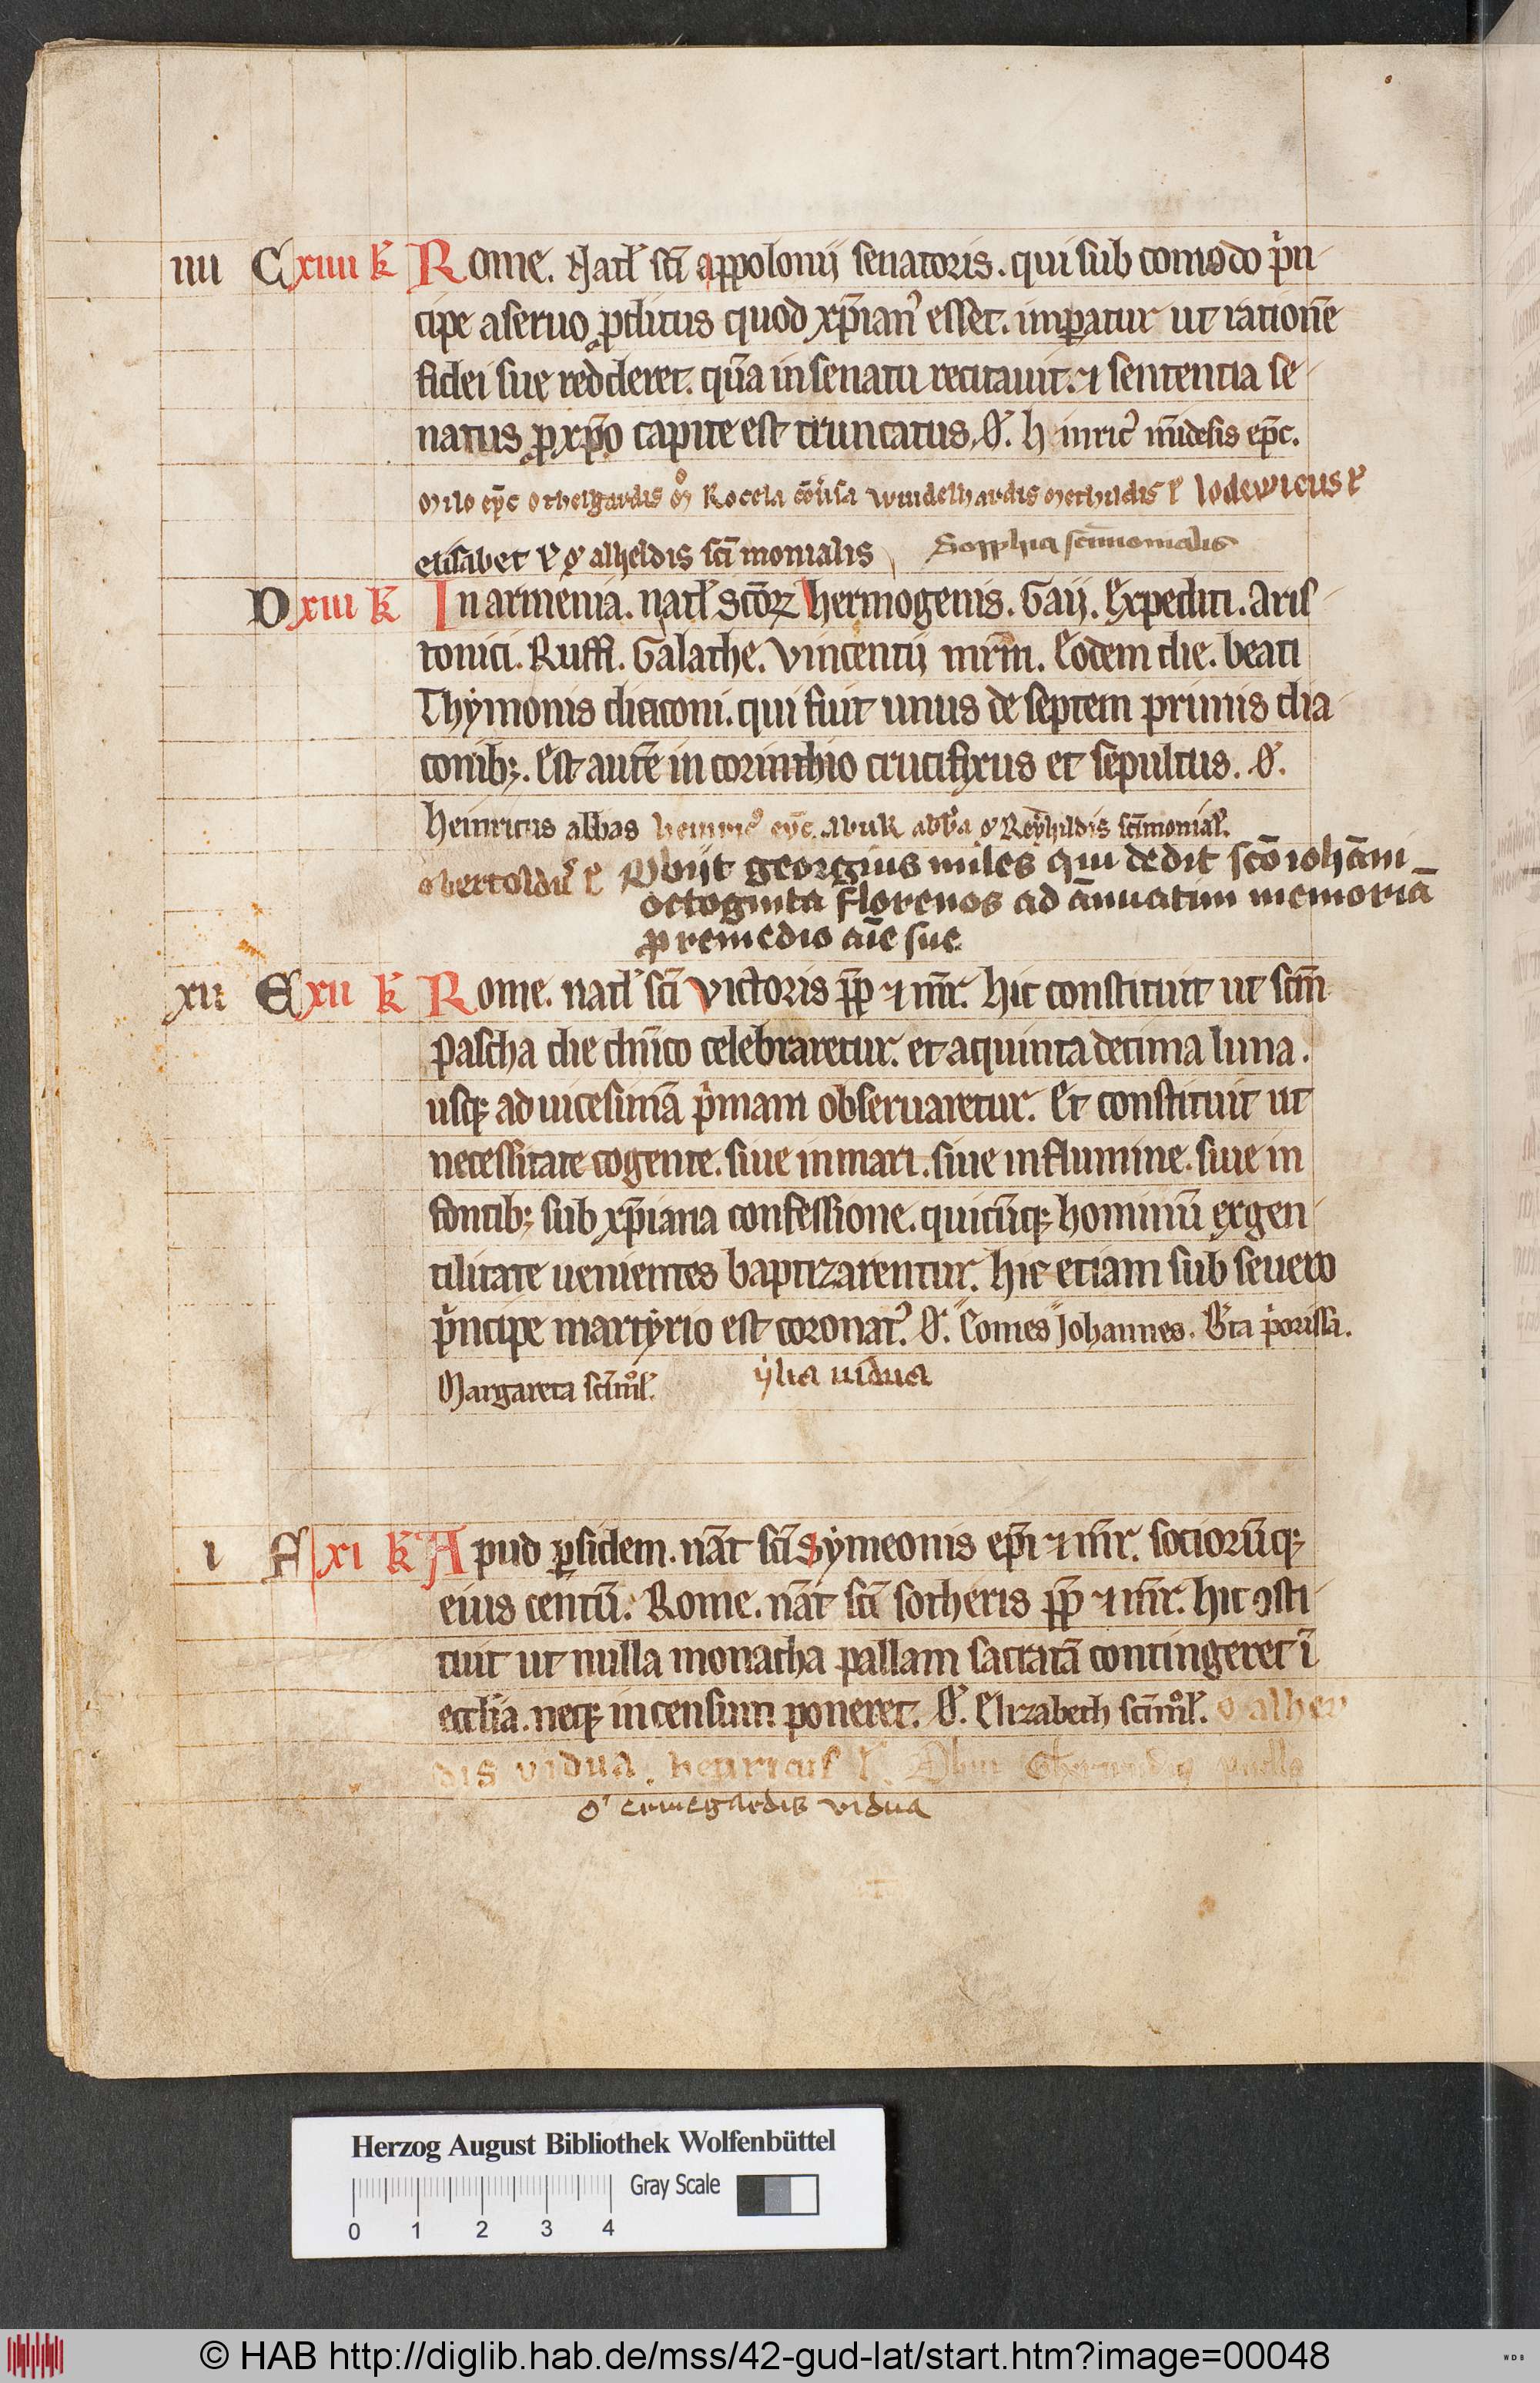 iiii C xiiii k͛ Rome. Natl͛ sc̄i appolonij senatoris. qui sub comodo p͛n
cipe aseruo ꝓditus quod xp̄ianꝰ esset. imꝑatur ut rationē
fidei sue redderet. quā in senatu recitauit. ⁊ sententia se
natus ꝓ xp̄o capite est truncatus. O͛. heinricꝰ mīdēsis ep̄c.
Milo ep̄c o thelgardis Rocela cōūsa windelhardis mechildis l͛ lodewicus l͛
elisabet l͛ o alheldis sc̄imonialis Sopphia sc̄imonialis
D xiii k͛ In armenia. natl͛ sc̄oꝝ hermogenis. Gaij. Expediti. Aris
tonici. Ruffi. Galathe. Vincentij mr̄m. Eodem die. beati
Thẏmonis diaconi. qui fuit unus de septem primis dia
conibꝫ. Est autē in corinthio crucifixus et sepultus. O͛.
Heinricus abbas heinricꝰ ep̄c. abbʼa o Reẏhildis sc̄imonial͛.
o bertoldꝰ l͛ Obijt georgius miles qui dedit sc̄o ioh̄ani
octoginta florenos ad ānuatim memoriā
ꝓ remedio aīe sue
xii E xii k͛ Rome. natl͛ sc̄i Victoris pp̄ ⁊ mr̄. hic constituit ut scm̄
pascha die dn̄ico celebraretur. et a quinta decima luna.
usqꝫ ad uicesimā p͛mam obseruaretur. Et constituit ut
necessitate cogente. siue in mari. siue in flumine. siue in
fontibꝫ sub xp̄iana confessione. quicūqꝫ hominū ex gen
tilitate uenientes baptizarentur. hic etiam sub seuero
p͛ncipe martẏrio est coronatꝰ. O͛. Comes Johannes. G͛ta p͛orissa.
Margareta sc̄imol͛. ẏlia uidua
i F xi k͛ Apud ꝑsidem. nāt sc̄i Sẏmeonis ep̄i ⁊ mr̄. sociorūqꝫ
eius centū. Rome. nāt sc̄i sotheris pp̄ ⁊ mr̄. hic ꝯsti
tuit ut nulla monacha pallam sacratā contingeret ī
eccl̄ia. neqꝫ incensum poneret. O͛. Elizabeth sc̄imol͛. o alhey
dis vidua. henricus l͛. Obiit
o ermegardis vidua
Herzog August Bibliothek Wolfenbüttel
Gray Scale
0 1 2 3 4
© HAB http://diglib.hab.de/mss/42-gud-lat/start.htm?image=00048
WDB